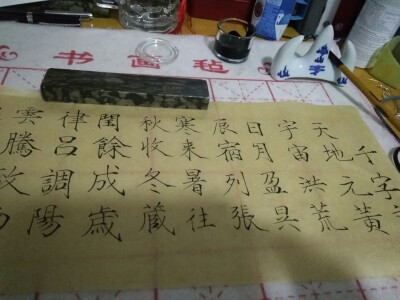 书画毡
千字
天地元黃
宇宙洪荒
日月盈昃
辰宿列張
寒来暑往
秋收冬藏
閏餘成歲
律呂調陽
雲騰致